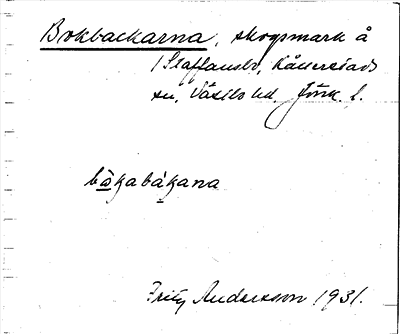 Bokbackarna, skogsmark å
1 Staffansbo, Kållerstads
sn, Västbo hd. Jönk. l.
bo̱kabáka̱na
Fritz Andersson 1931.